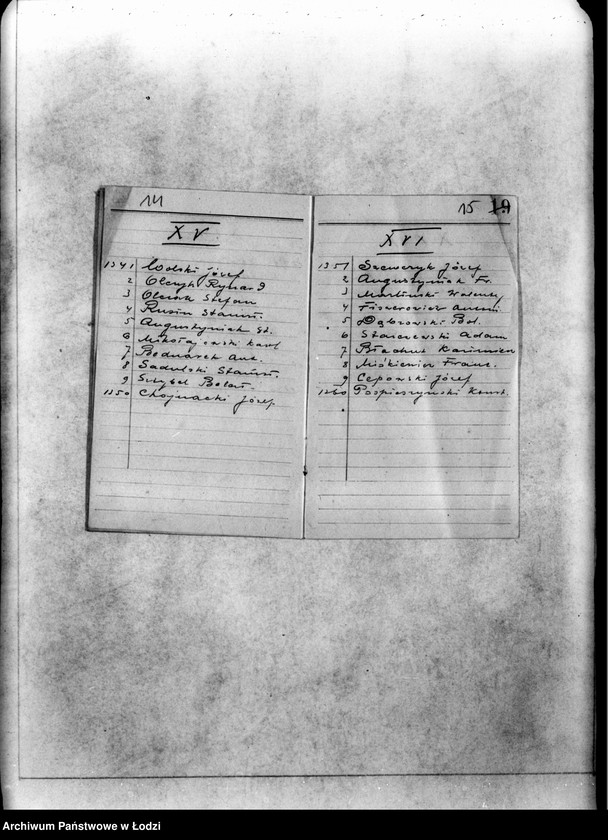 14
XV
1341 Wolski Józef
2 Olczyk Ryszard
3 Olczak Stefan
4 Rusin Stanisł.
5 Augustyniak St.
6 Mikołajewski Karl
7 Bednarek Ant.
8 Sadulski Stanisł.
9 Bolesł.
1350 Chojnacki Józef
15 19
XVI
1351 Szewczyk Józef
2 Augustyniak Fr.
3 Marliński Walenty
4 Antoni
5 Dąbrowski Bol.
6 Staniszewski Adam
7 Kazimierz
8 Miśkiewicz Franc.
9 Cepowski Józef
1360 Pospieszyński Konst.
Archiwum Państwowe w Łodzi